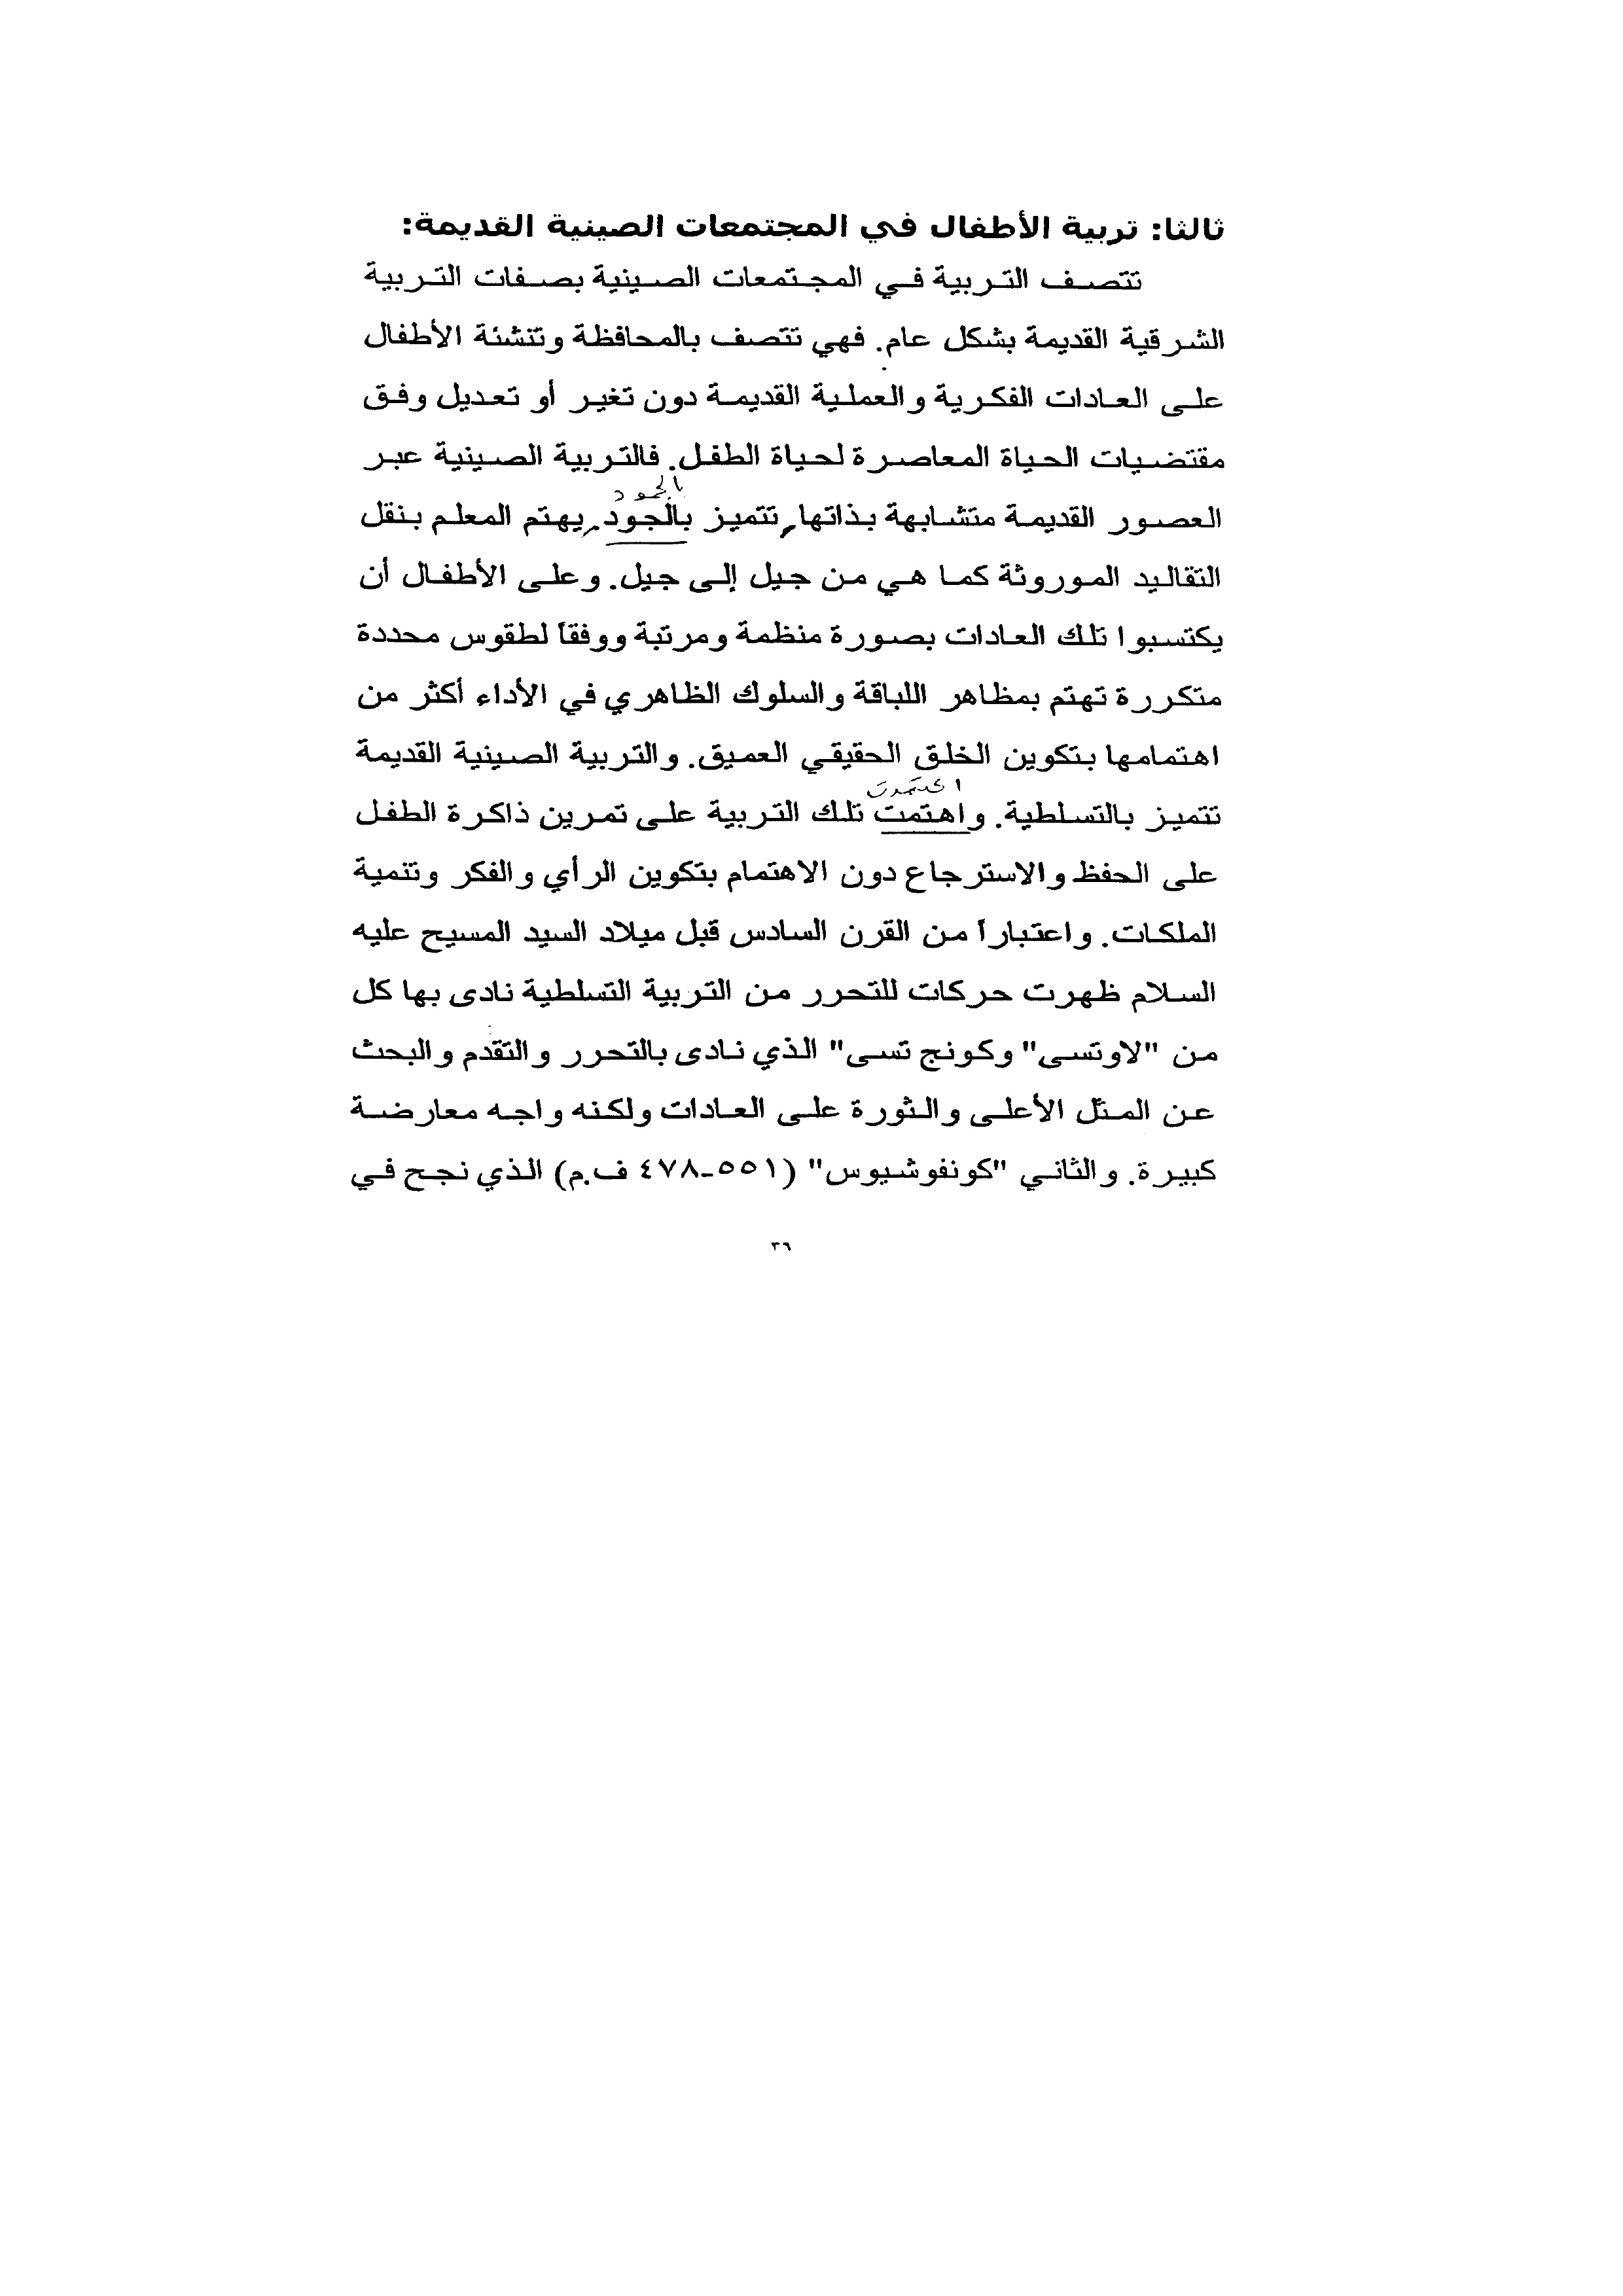 ثالثا: تربية الأطفال في المجتمعات الصينية القديمة:
تتصف التربية في المجتمعات الصينية بصفات التربية
الشرقية القديمة بشكل عام. فهي تتصف بالمحافظة وتنشئة الأطفال
على العادات الفكرية والعملية القديمة دون تغير أو تعديل وفق
مقتضيات الحياة المعاصرة لحياة الطفل. فالتربية الصينية عبر
الجمود
العصور القديمة متشابهة بذاتها، تتميز بالجود، يهتم المعلم بنقل
التقاليد الموروثة كما هي من جيل إلى جيل. وعلى الأطفال أن
يكتسبوا تلك العادات بصورة منظمة ومرتبة ووفقاً لطقوس محددة
متكررة تهتم بمظاهر اللباقة والسلوك الظاهري في الأداء أكثر من
اهتمامها بتكوين الخلق الحقيقي العميق. والتربية الصينية القديمة
تتميز بالتسلطية. واهتمت تلك التربية على تمرين ذاكرة الطفل
على الحفظ والاسترجاع دون الاهتمام بتكوين الرأي والفكر وتنمية
الملكات. واعتباراً من القرن السادس قبل ميلاد السيد المسيح عليه
السلام ظهرت حركات للتحرر من التربية التسلطية نادى بها كل
من "لاوتسى" وكونج تسى" الذي نادى بالتحرر والتقدم والبحث
عن المثل الأعلى والثورة على العادات ولكنه واجه معارضة
كبيرة. والثاني "كونفوشيوس" (٥٥١-٤٧٨ ف.م) الذي نجح في
٣٦